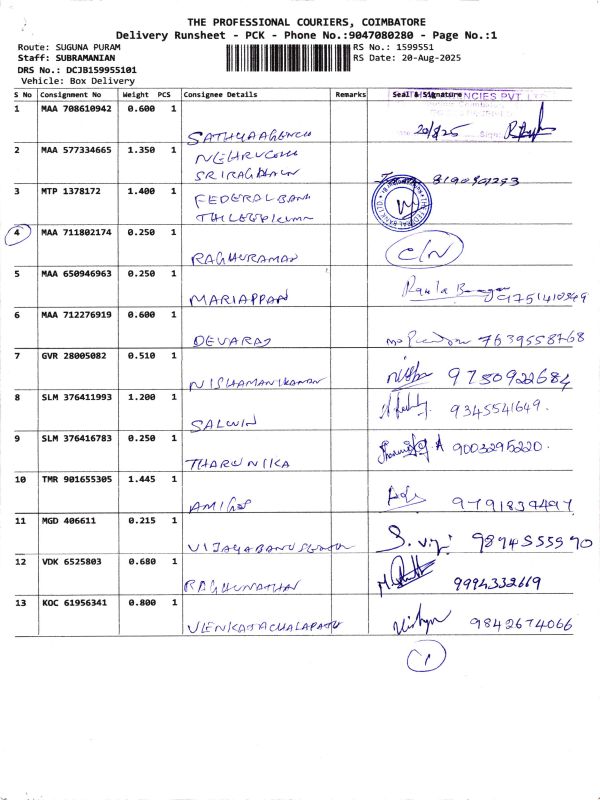 THE PROFESSIONAL COURIERS, COIMBATORE
Delivery Runsheet - PCK - Phone No.:9047080280 - Page No.:1
Route: SUGUNA PURAM
RS No.: 1599551
Staff: SUBRAMANIAN
RS Date: 20-Aug-2025
DRS No.: DCJB159955101
Vehicle: Box Delivery
S No Consignment No Weight PCS Consignee Details Remarks Seal & Signature
1 MAA 708610942 0.600 1
20/8/25
2 MAA 577334665 1.350 1
3 MTP 1378172 1.400 1 FEDERAL BANK
4 MAA 711802174 0.250 1 RAGHURAMAN C/N
5 MAA 650946963 0.250 1 MARIAPPAN
6 MAA 712276919 0.600 1 DEVARAJ 7639558768
7 GVR 28005082 0.510 1 NISHAMANIKANDAN 9750922684
8 SLM 376411993 1.200 1 SALWIN 9345541649.
9 SLM 376416783 0.250 1 THARUNIKA 9003295220.
10 TMR 901655305 1.445 1 9791839497
11 MGD 406611 0.215 1 9894555590
12 VDK 6525803 0.680 1 RAGHUNATHAN 9994332619
13 KOC 61956341 0.800 1 VLENKATACHALAPATHY 9842674066